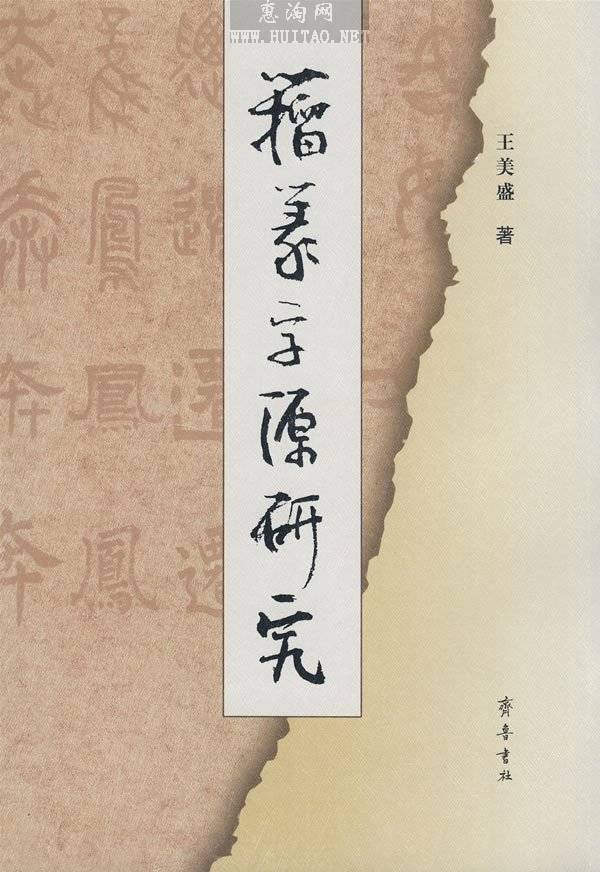 惠淘网
WWW.HUITAO.NET
籀篆字源研究
王美盛 著
齊魯書社
奔 鳳 遷
奔 鳳 遷